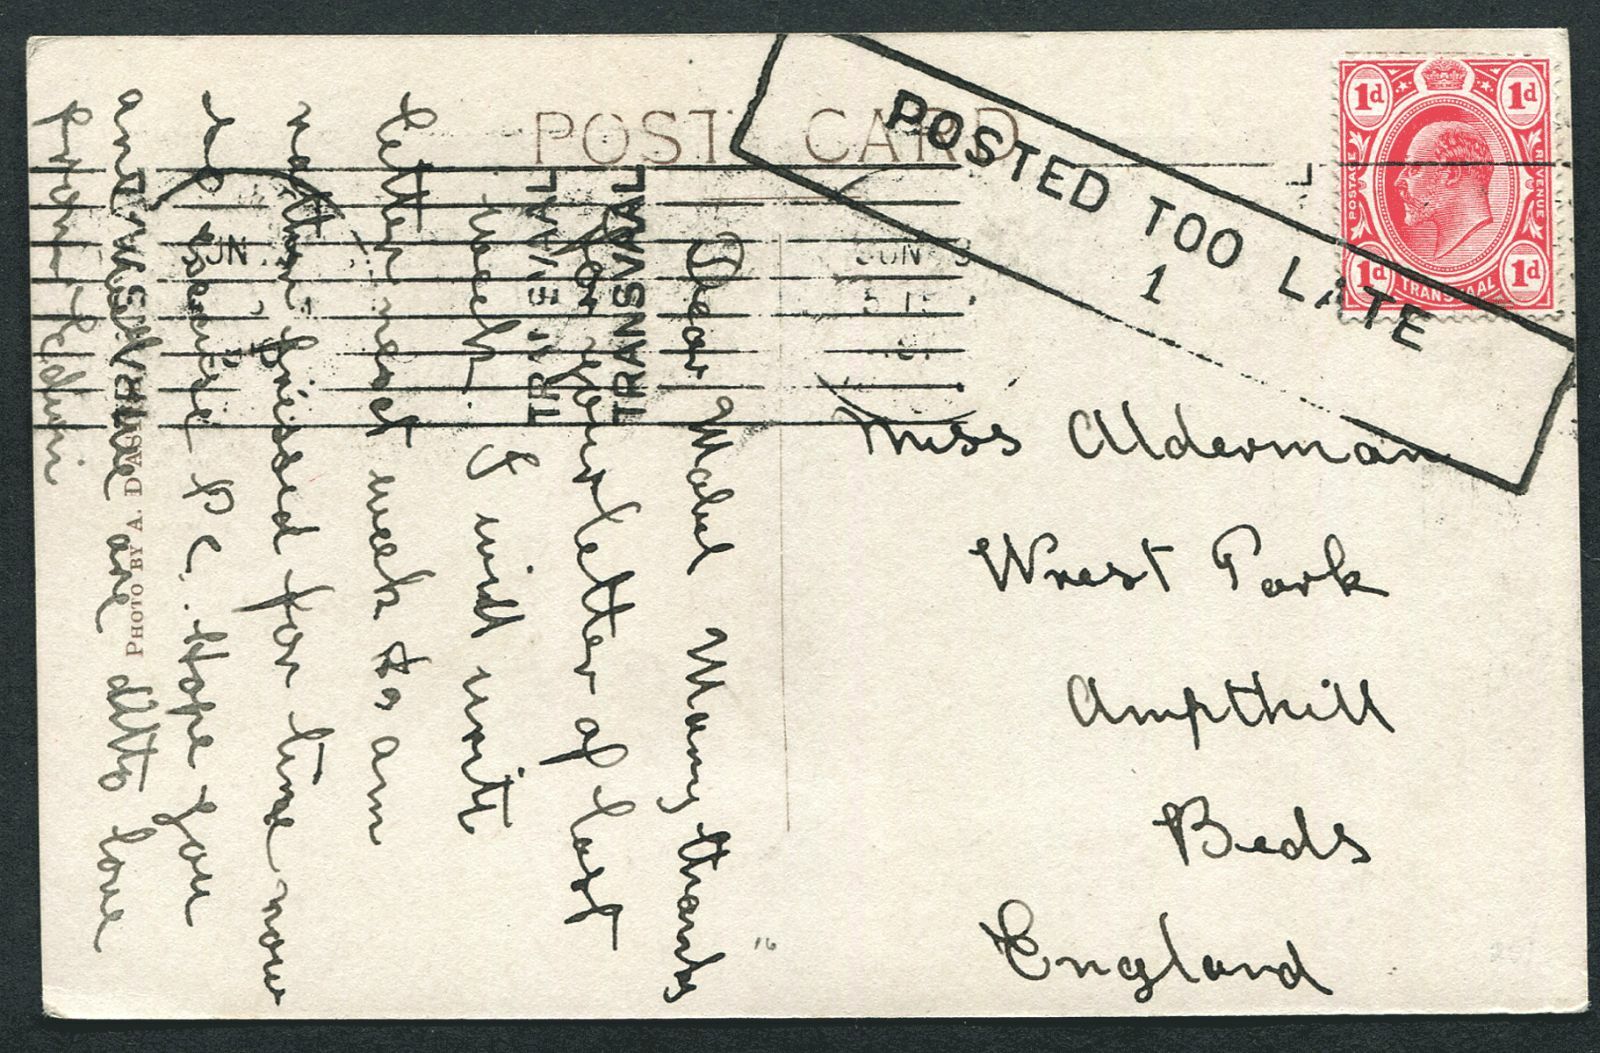 POST CARD
POSTED TOO LATE
1
1d 1d
POSTAGE REVENUE
1d 1d
TRANSVAAL
JUN
JUN 3
TRANSVAAL
TRANSVAAL
TRANSVAAL
Miss Alderman
Wrest Park
Ampthill
Beds
England
Dear Mabel Many thanks
for your letter of last
week I will write
letter next week as am
rather pressed for time now
so excuse P.C. Hope you
and are ditto love
from
PHOTO BY A. D
16